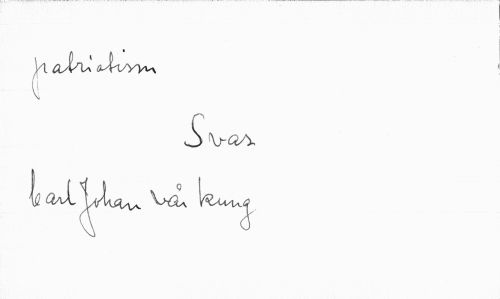 patriotism
Svar
Carl Johan vår kung